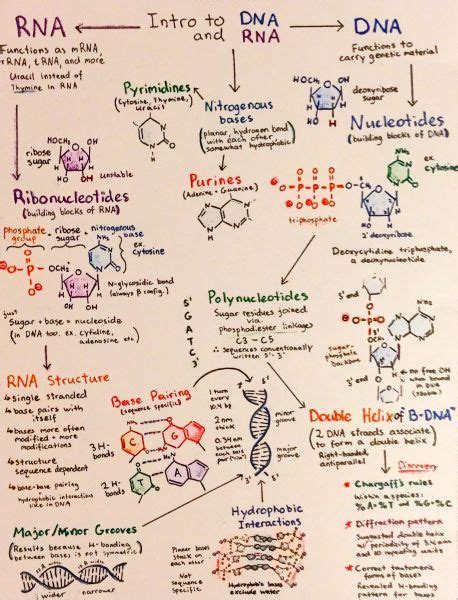 RNA
Intro to and DNA RNA
DNA
Functions as mRNA,
rRNA, tRNA, and more
Uracil instead of
Thymine in RNA
ribose
sugar
HO
OH
unstable
Ribonucleotides
(building blocks of RNA)
phosphate group + ribose sugar + nitrogenous base
ex.
cytosine
N-glycosidic bond
(always β config.)
just
Sugar + base = nucleoside
(in DNA too. ex. cytidine,
adenosine etc.)
Pyrimidines
(Cytosine, Thymine,
Uracil)
Nitrogenous
bases
(planar, hydrogen bond
with each other,
somewhat hydrophobic)
Purines
(Adenine + Guanine)
Functions to
carry genetic material
HOCH₂
OH
deoxyribose
sugar
HO
H
Nucleotides
(building blocks of DNA)
ex.
cytosine
triphosphate
2'deoxyribose
Deoxycytidine triphosphate,
a deoxynucleotide
Polynucleotides
Sugar residues joined
via
phosphodiester linkages
C3 - C5
∴ sequences conventionally
written 5'-3'
5'
G
A
T
C
3'
5'end
sugar-
phosphate
backbone
3'end
no free OH
when bound
in DNA
RNA Structure
single stranded
base pairs with
itself
bases more often
modified + more
modifications
structure
sequence dependent
base-base pairing
hydrophobic interactions
like in DNA
Base Pairing
(sequence specific)
3 H-
bonds
C
G
2 H-
bonds
T
A
1 turn
every
10.4 bp
2 nm
thick
0.34 nm
between each
base pair
3'
5'
minor
groove
major
groove
3'
5'
Double Helix of B-DNA
(2 DNA strands associate
to form a double helix)
Right-handed
antiparallel
Discovery
Chargaff's rules
Within a species:
%A=%T and %G=%C
Diffraction pattern
Suggested double helix
w/ periodicity of 3.4 nm
and 10 repeating units
Correct tautomeric
forms of bases
Revealed H-bonding
pattern for bases
Major/Minor Grooves
(Results because H-bonding
between bases is not symmetric)
wider
narrower
Hydrophobic
Interactions
Planar bases
stack on
each other
Not
sequence
specific
Hydrophobic bases
exclude water